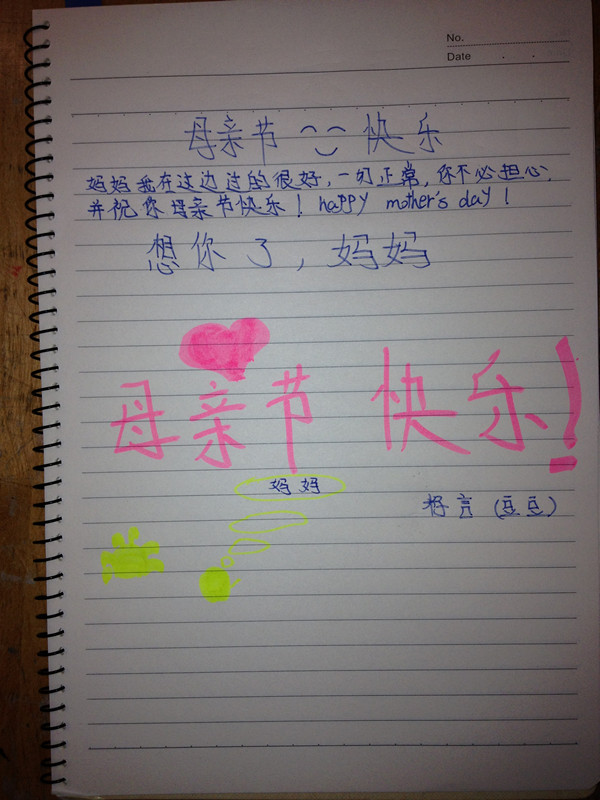 No.
Date
母亲节 快乐
妈妈我在这边过的很好，一切正常，你不必担心，
并祝你母亲节快乐！happy mother's day！
想你了，妈妈
母亲节 快乐！
妈妈
言（豆豆）